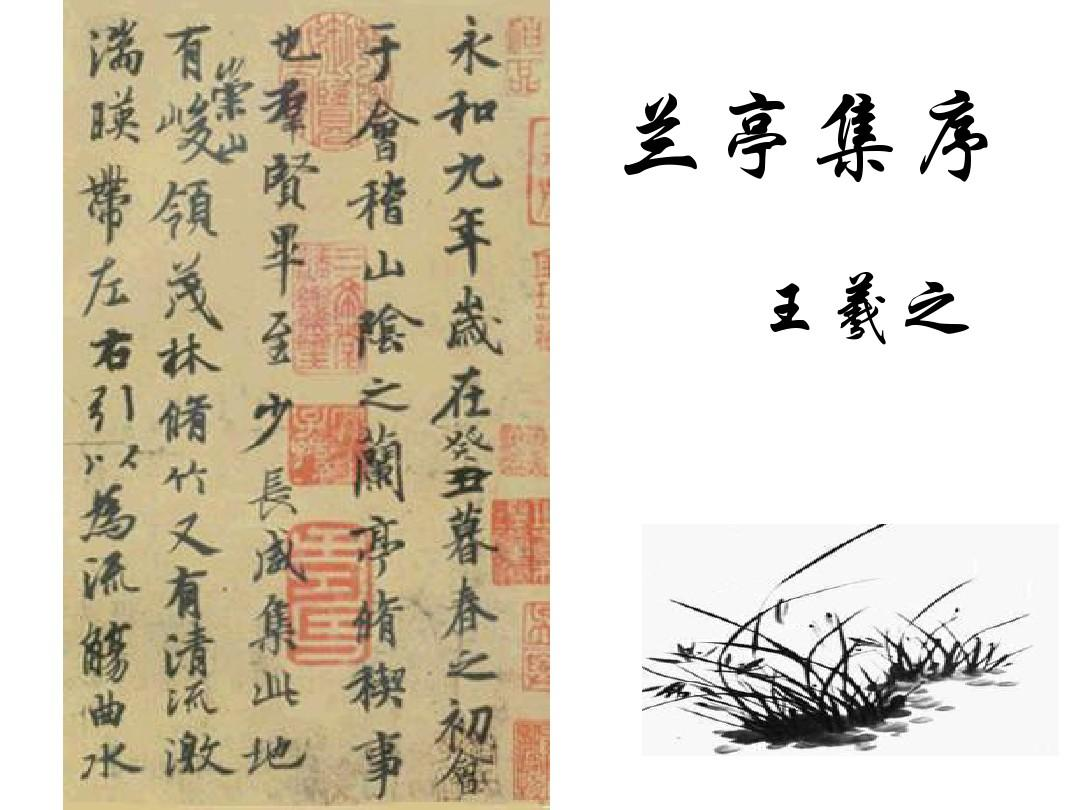 兰亭集序
王羲之
永和九年歲在癸丑暮春之初會
于會稽山陰之蘭亭脩稧事
也羣賢畢至少長咸集此地
有崇山峻領茂林脩竹又有清流激
湍暎帶左右引以為流觴曲水